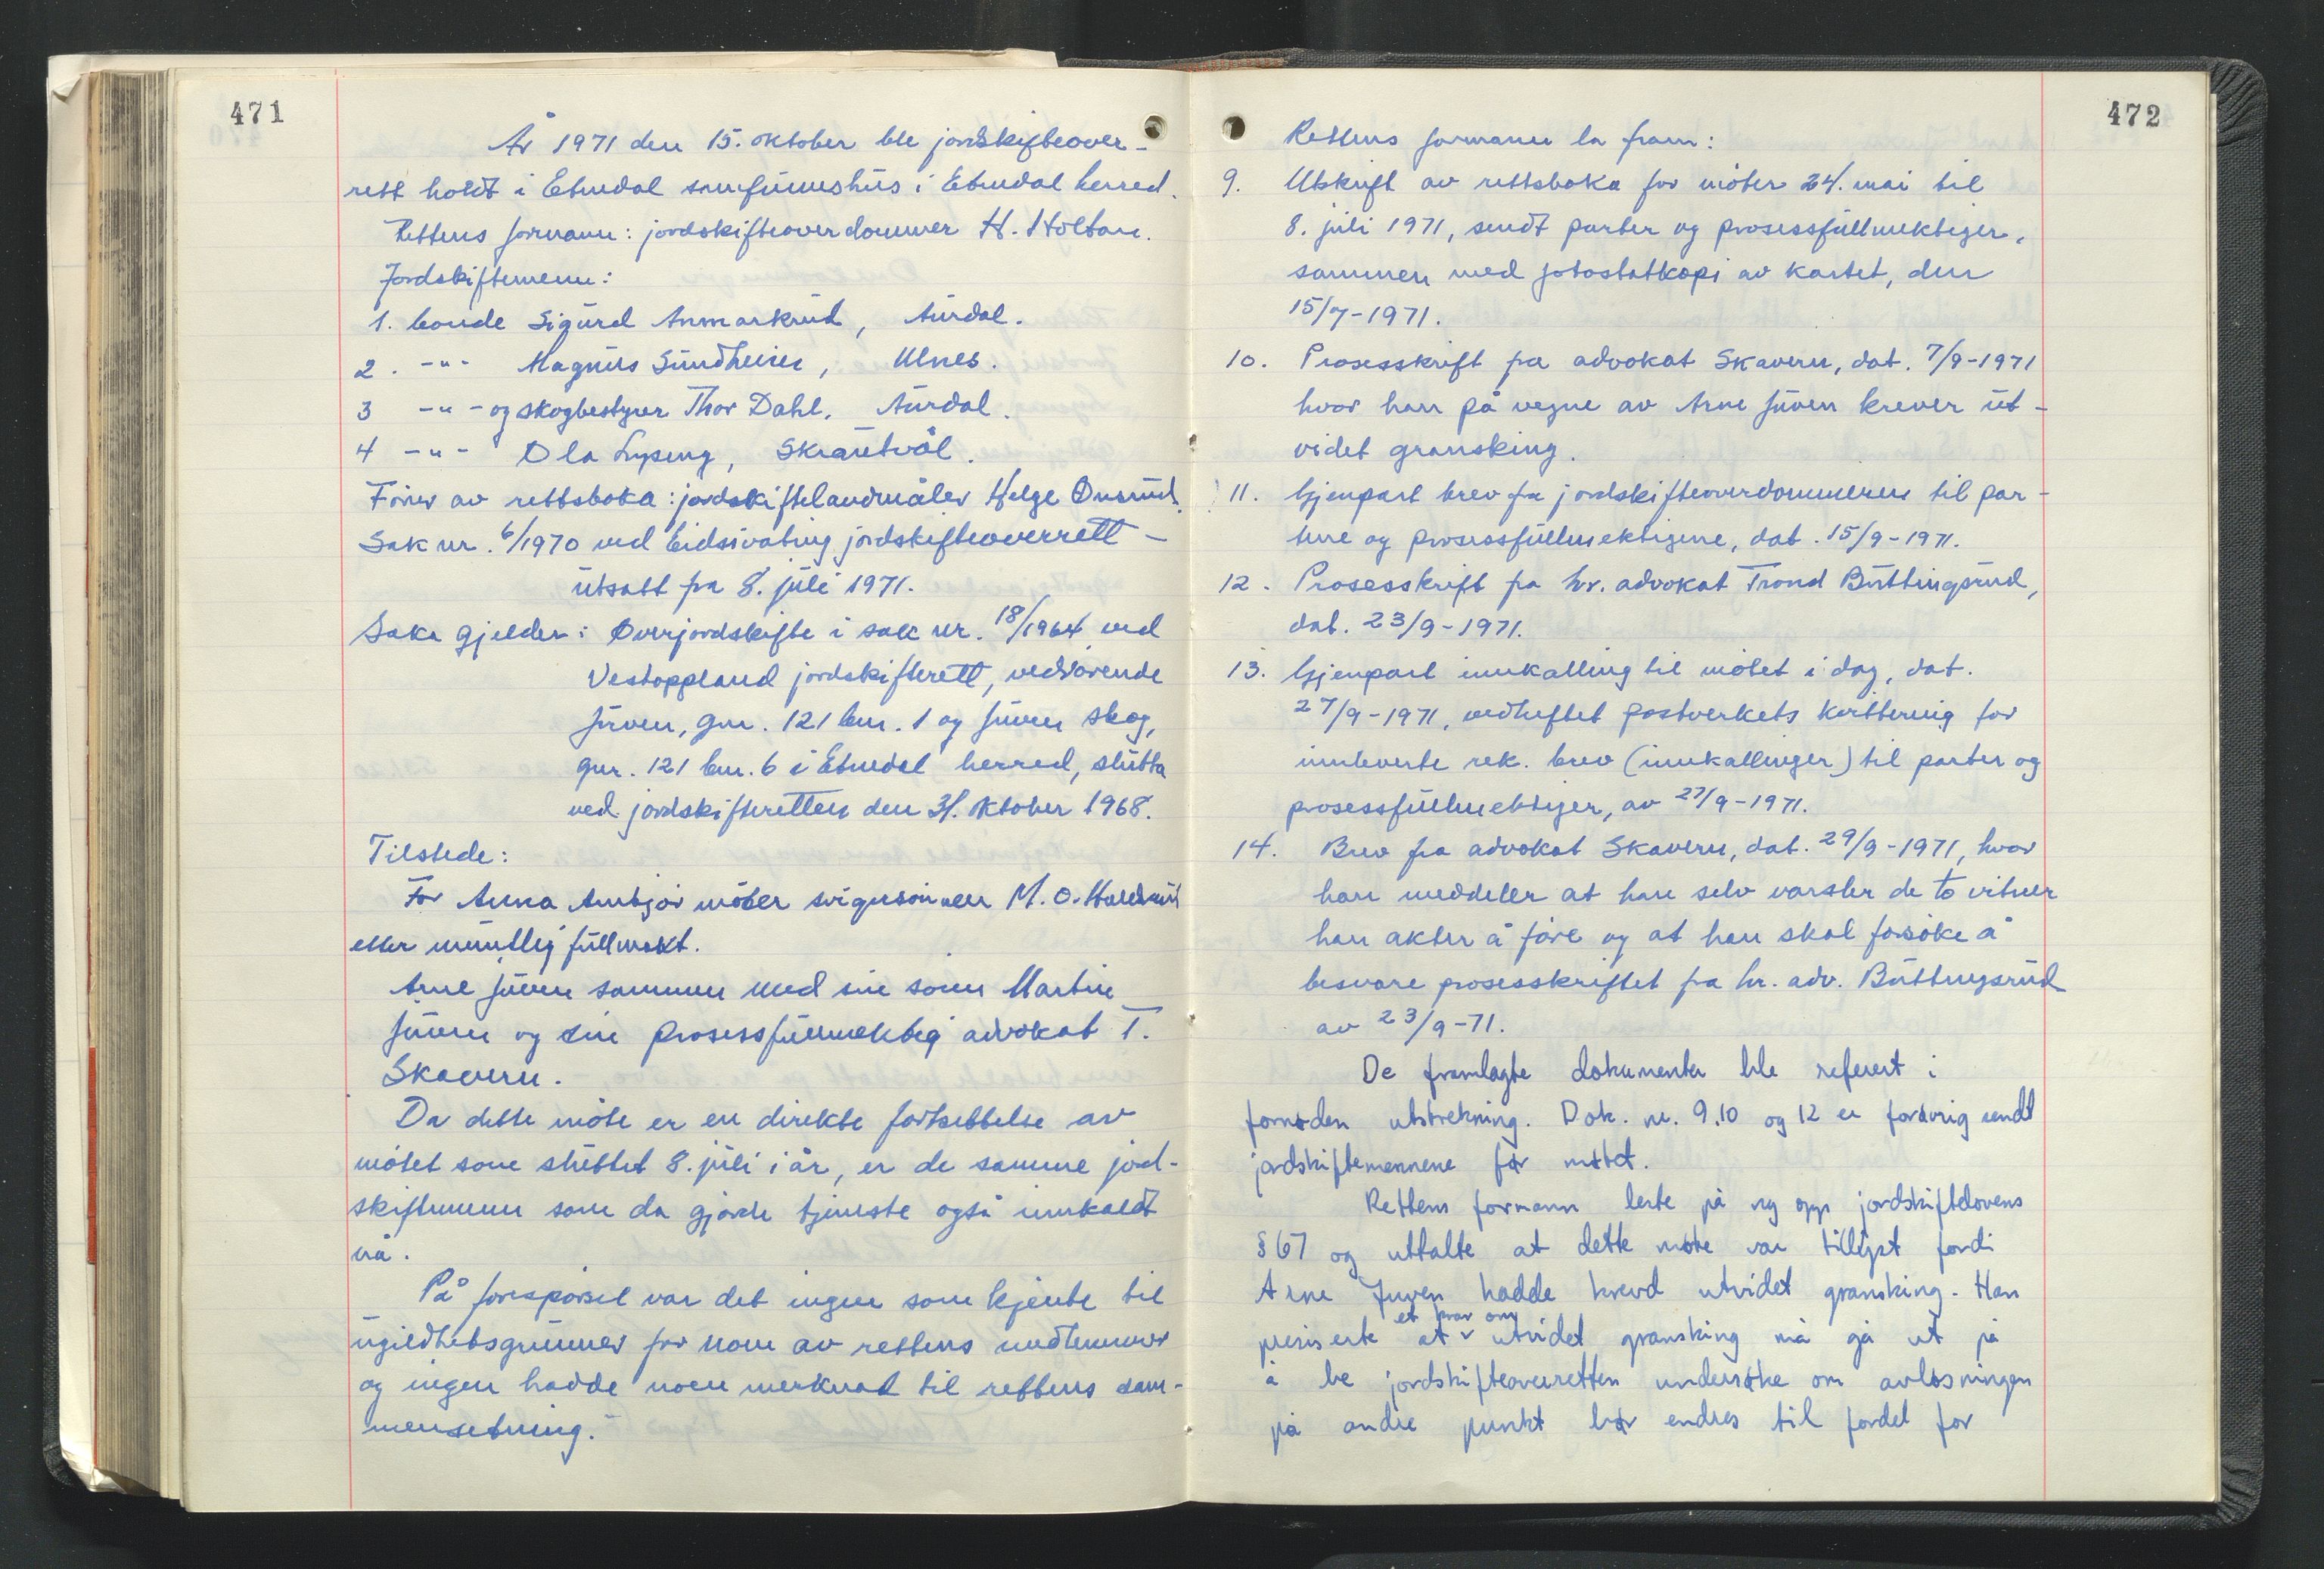 471
År 1971 den 15. oktober ble jordskifteover-
rett holdt i Etnedal samfunnshus i Etnedal herred.
Rettens formann: jordskifteoverdommer H. Holtan.
Jordskiftemenn:
1. bonde Sigurd Anmarkrud, Aurdal.
2. -"- Magnus Sundheim, Ulnes.
3 -"- og skogbestyrer Thor Dahl, Aurdal.
4 -"- Ola Lyseng, Skrautvål.
Fører av rettsboka: jordskiftelandmåler Helge Onsrud.
Sak nr. 6/1970 ved Eidsivating jordskifteoverrett -
utsatt fra 8. juli 1971.
Saka gjelder: Overjordskifte i sak nr. 18/1964 ved
Vestoppland jordskifterett, vedrørende
Juven, gnr. 121 bnr. 1 og Juven skog,
gnr. 121 bnr. 6 i Etnedal herred, slutta
ved jordskifteretten den 31. oktober 1968.
Tilstede:
For Anna møter svigersønnen M. O.
etter muntlig fullmakt.
Arne Juven sammen med sin sønn Martin
Juven og sin prosessfullmektig advokat T.
Skavern.
Da dette møte er en direkte fortsettelse av
møtet som sluttet 8. juli i år, er de samme jord-
skiftemenn som da gjorde tjeneste også innkaldt
nå.
På forespørsel var det ingen som kjente til
ugildhetsgrunner for noen av rettens medlemmer
og ingen hadde noen merknad til rettens sam-
mensetning.
472
Rettens formann la fram:
9. Utskrift av rettsboka for møter 24. mai til
8. juli 1971, sendt parter og prosessfullmektiger,
sammen med fotostatkopi av kartet, den
15/7-1971.
10. Prosesskrift fra advokat Skavern, dat. 7/9-1971
hvor han på vegne av Arne Juven krever ut-
videt gransking.
11. Gjenpart brev fra jordskifteoverdommeren til par-
tene og prosessfullmektigene, dat. 15/9-1971.
12. Prosesskrift fra hr. advokat Trond Buttingsrud,
dat. 23/9-1971.
13. Gjenpart innkalling til møtet i dag, dat.
27/9-1971, vedheftet postverkets kvittering for
innleverte rek. brev (innkallinger) til parter og
prosessfullmektiger, av 27/9-1971.
14. Brev fra advokat Skavern, dat. 29/9-1971, hvor
han meddeler at han selv varsler de to vitner
han akter å føre og at han skal forsøke å
besvare prosesskriftet fra hr. adv. Buttingsrud
av 23/9-71.
De framlagte dokumenter ble referert i
fornøden utstrekning. Dok. nr. 9,10 og 12 er forøvrig sendt
jordskiftemennene før møtet.
Rettens formann leste på ny opp jordskiftelovens
§ 67 og uttalte at dette møte var tillyst fordi
Arne Juven hadde krevd utvidet gransking. Han
et krav om
presiserte at utvidet gransking må gå ut på
å be jordskifteoverretten undersøke om avløsningen
på andre punkt bør endres til fordel for